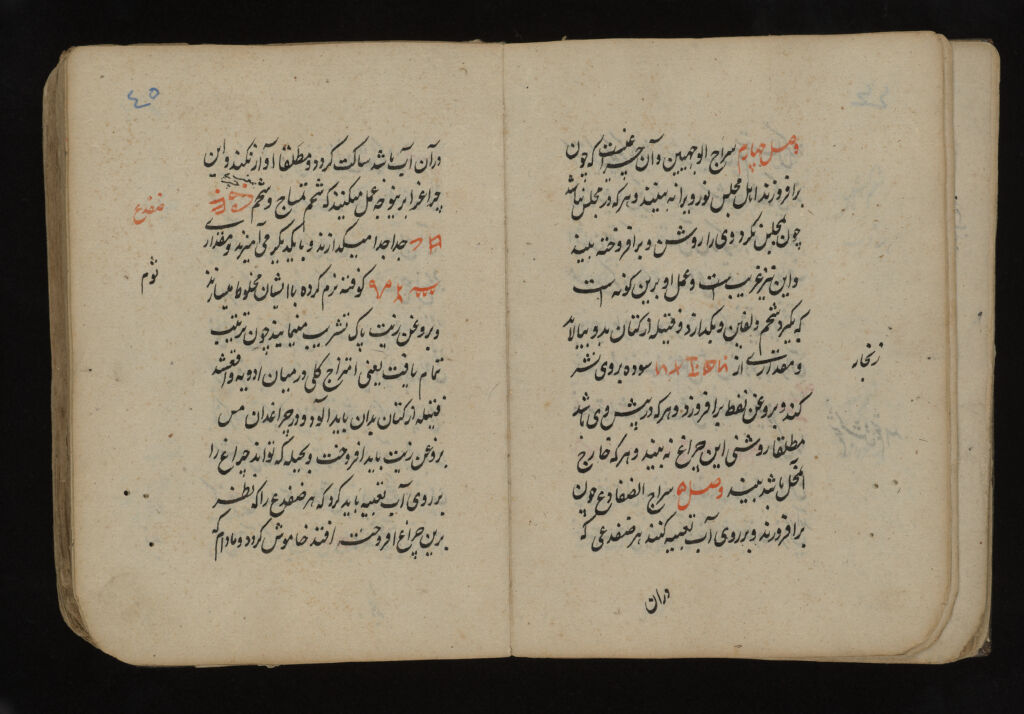 وصل چهارم سراج الوجهین و آن چراغیست که چون
برافروزند اهل مجلس نور ویرا نه بینند و هر که در مجلس نباشد
چون مجلس نکرد وی را روشن و برافروخته بیند
و این نیز غریب است و عمل او برین گونه است
که بگیرد شحم دلفین و بگدازد و فتیله از کتان بدو بیالاید
و مقداری از سوده بروی نثر
زنجار
کند و بروغن نفط برافروزد و هر که در پیش وی باشد
مطلقا روشنی این چراغ نه بیند و هر که خارج
المحل باشد بیند وصل ۵ سراج الضفادع چون
برافروزند و بر روی آب تعبیه کنند هر ضفدعی که
دران
٤٥
درآن آب باشد ساکت کردد و مطلقا آواز نکند و این
چراغ را برینوجه عمل میکنند که شحم تمساح و شحم
ضفدع
جدا جدا میگدازند و با یکدیگر می آمیزند و مقداری
ثوم
کوفته نرم کرده با ایشان مخلوط میسازند
و بروغن زیت پاک تشریب مینمایند چون ترتیب
تمام یافت یعنی امتزاج کلی در میان ادویه واقع شد
فتیله از کتان بدان باید آلود و در چراغدان مس
بروغن زیت باید افروخت و بحیله که تواند چراغ را
بر روی آب تعبیه باید کرد که هر ضفدع را که نظر
برین چراغ افروخته افتد خاموش کردد و مادام که